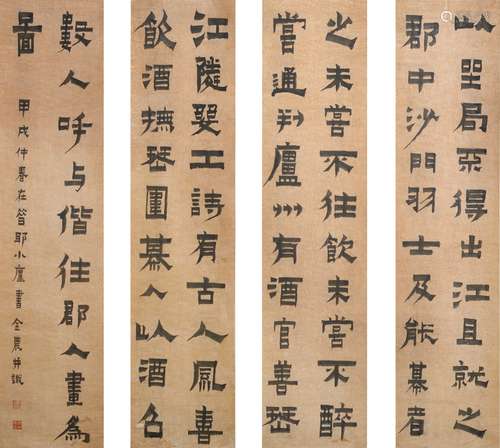 以坐局不得出江且就之
郡中沙門羽士及能棊者
之未嘗不往飲未嘗不醉
嘗通判廬州有酒官善琴
江隣幾工詩有古人風喜
飲酒撫琴圍棊人以酒召
數人呼与偕往郡人畫為
圖
甲戌仲春在笤耶小廬書 金農并識